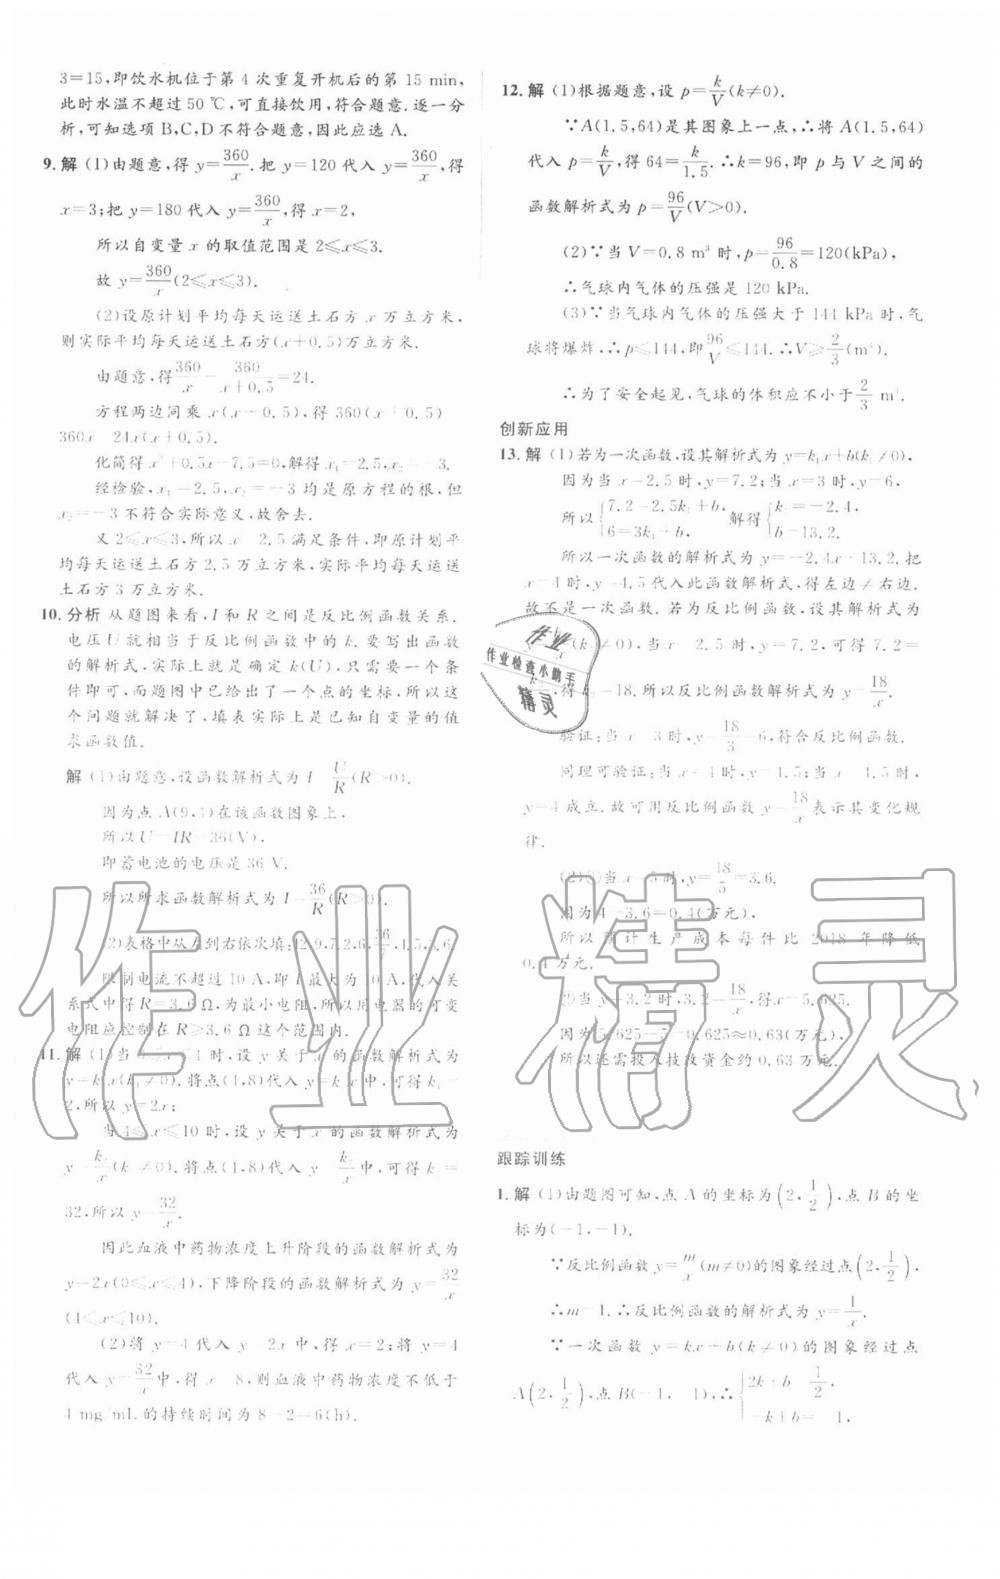 3=15,即饮水机位于第 4 次重复开机后的第 15 min,
此时水温不超过 50 ℃,可直接饮用,符合题意.逐一分
析,可知选项 B,C,D 不符合题意,因此应选 A.
9. 解 (1)由题意,得 y=360/x.把 y=120 代入 y=360/x,得
x=3;把 y=180 代入 y=360/x,得 x=2,
所以自变量 x 的取值范围是 2≤x≤3.
故 y=360/x(2≤x≤3).
(2)设原计划平均每天运送土石方 x 万立方米,
则实际平均每天运送土石方(x+0.5)万立方米.
由题意,得 360/x - 360/(x+0.5)=24.
方程两边同乘 x(x+0.5),得 360(x+0.5)
360x 24x(x+0.5).
化简得 x²+0.5x-7.5=0,解得 x₁=2.5,x₂=-3
经检验,x₁=2.5,x₂=-3 均是原方程的根,但
x₂=-3 不符合实际意义,故舍去.
又 2≤x≤3,所以 x 2.5 满足条件,即原计划平
均每天运送土石方 2.5 万立方米,实际平均每天运送
土石方 3 万立方米.
10. 分析 从题图来看,I 和 R 之间是反比例函数关系.
电压 U 就相当于反比例函数中的 k.要写出函数
的解析式,实际上就是确定 k(U).只需要一个条
件即可,而题图中已给出了一个点的坐标,所以这
个问题就解决了,填表实际上是已知自变量的值
求函数值.
解 (1)由题意,设函数解析式为 I U/R(R>0).
因为点 A(9,4)在该函数图象上,
所以 U=IR=36(V).
即蓄电池的电压是 36 V.
所以所求函数解析式为 I=36/R(R>0).
(2)表格中从左到右依次填:12,9,7.2,6,36/7,4.5,3.6.
限制电流不超过 10 A,即 I 最大为 10 A,代入关
系式中得 R=3.6 Ω,为最小电阻,所以用电器的可变
电阻应控制在 R≥3.6 Ω 这个范围内.
11. 解 (1)当 0≤x≤4 时,设 y 关于 x 的函数解析式为
y=k₁x(k₁≠0),将点(4,8)代入 y=k₁x 中,可得 k₁=
2,所以 y=2x;
当 4≤x≤10 时,设 y 关于 x 的函数解析式为
y k₂/x(k₂≠0),将点(4,8)代入 y k₂/x 中,可得 k₂
32,所以 y=32/x.
因此血液中药物浓度上升阶段的函数解析式为
y=2x(0≤x≤4),下降阶段的函数解析式为 y=32/x
(4≤x≤10).
(2)将 y=4 代入 y=2x 中,得 x=2;将 y=4
代入 y=32/x 中,得 x 8,则血液中药物浓度不低于
4 mg/mL 的持续时间为 8-2=6(h).
12. 解 (1)根据题意,设 p=k/V(k≠0).
∵A(1.5,64)是其图象上一点,∴将 A(1.5,64)
代入 p=k/V,得 64=k/1.5.∴k=96,即 p 与 V 之间的
函数解析式为 p=96/V(V>0).
(2)∵当 V=0.8 m³ 时,p=96/0.8=120(kPa),
∴气球内气体的压强是 120 kPa.
(3)∵当气球内气体的压强大于 144 kPa 时,气
球将爆炸,∴p≤144,即 96/V≤144.∴V≥2/3(m³)
∴为了安全起见,气球的体积应不小于 2/3 m³.
创新应用
13. 解 (1)若为一次函数,设其解析式为 y=k₁x+b(k₁≠0),
因为当 x=2.5 时,y=7.2;当 x=3 时,y=6,
所以 {7.2=2.5k₁+b, 6=3k₁+b. 解得 {k₁=-2.4, b=13.2.
所以一次函数的解析式为 y=-2.4x+13.2.把
x=4 时,y=4.5 代入此函数解析式,得左边≠右边.
故不是一次函数.若为反比例函数,设其解析式为
(k₂≠0),当 x 2.5 时,y=7.2,可得 7.2=
,得 k₂=18.所以反比例函数解析式为 y=18/x.
验证:当 x=3 时,y=18/3=6,符合反比例函数.
同理可验证:当 x=4 时,y=4.5;当
y=4 成立.故可用反比例函数 y=18/x 表示其变化规
律.
(2)①当 x=5 时,y=18/5=3.6.
因为 4-3.6=0.4(万元),
所以预计生产成本每件比 2018 年降低
0.4 万元.
②当 y=3.2 时,3.2=18/x,得 x=5.625.
因为 5.625-5=0.625≈0.63(万元),
所以还需投入技改资金约 0.63 万元.
跟踪训练
1. 解 (1)由题图可知,点 A 的坐标为(2,1/2),点 B 的坐
标为(-1,-1).
∵反比例函数 y=m/x(m≠0)的图象经过点(2,1/2),
∴m=1.∴反比例函数的解析式为 y=1/x.
∵一次函数 y=kx+b(k≠0)的图象经过点
A(2,1/2),点 B(-1,-1),∴{2k+b 1/2, -k+b=-1,
作业
作业检查小助手
精灵
作业精灵